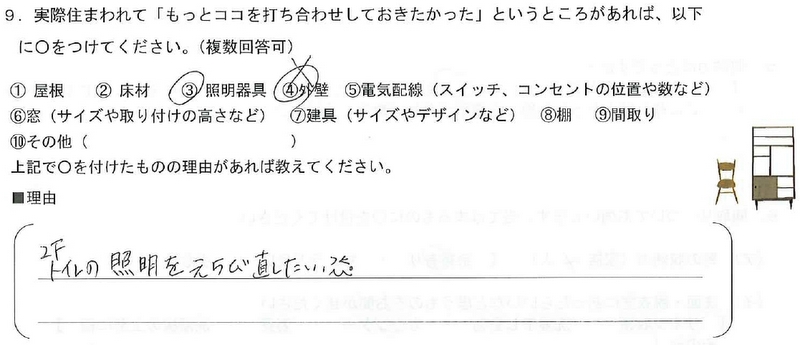 ９．実際住まわれて「もっとココを打ち合わせしておきたかった」というところがあれば、以下
に○をつけてください。（複数回答可）
① 屋根　② 床材　③ 照明器具　④外壁　⑤電気配線（スイッチ、コンセントの位置や数など）
⑥窓（サイズや取り付けの高さなど）　⑦建具（サイズやデザインなど）　⑧棚　⑨間取り
⑩その他（　　　　　　　　　　　　　）
上記で○を付けたものの理由があれば教えてください。
■理由
2F
トイレの照明をえらび直したい